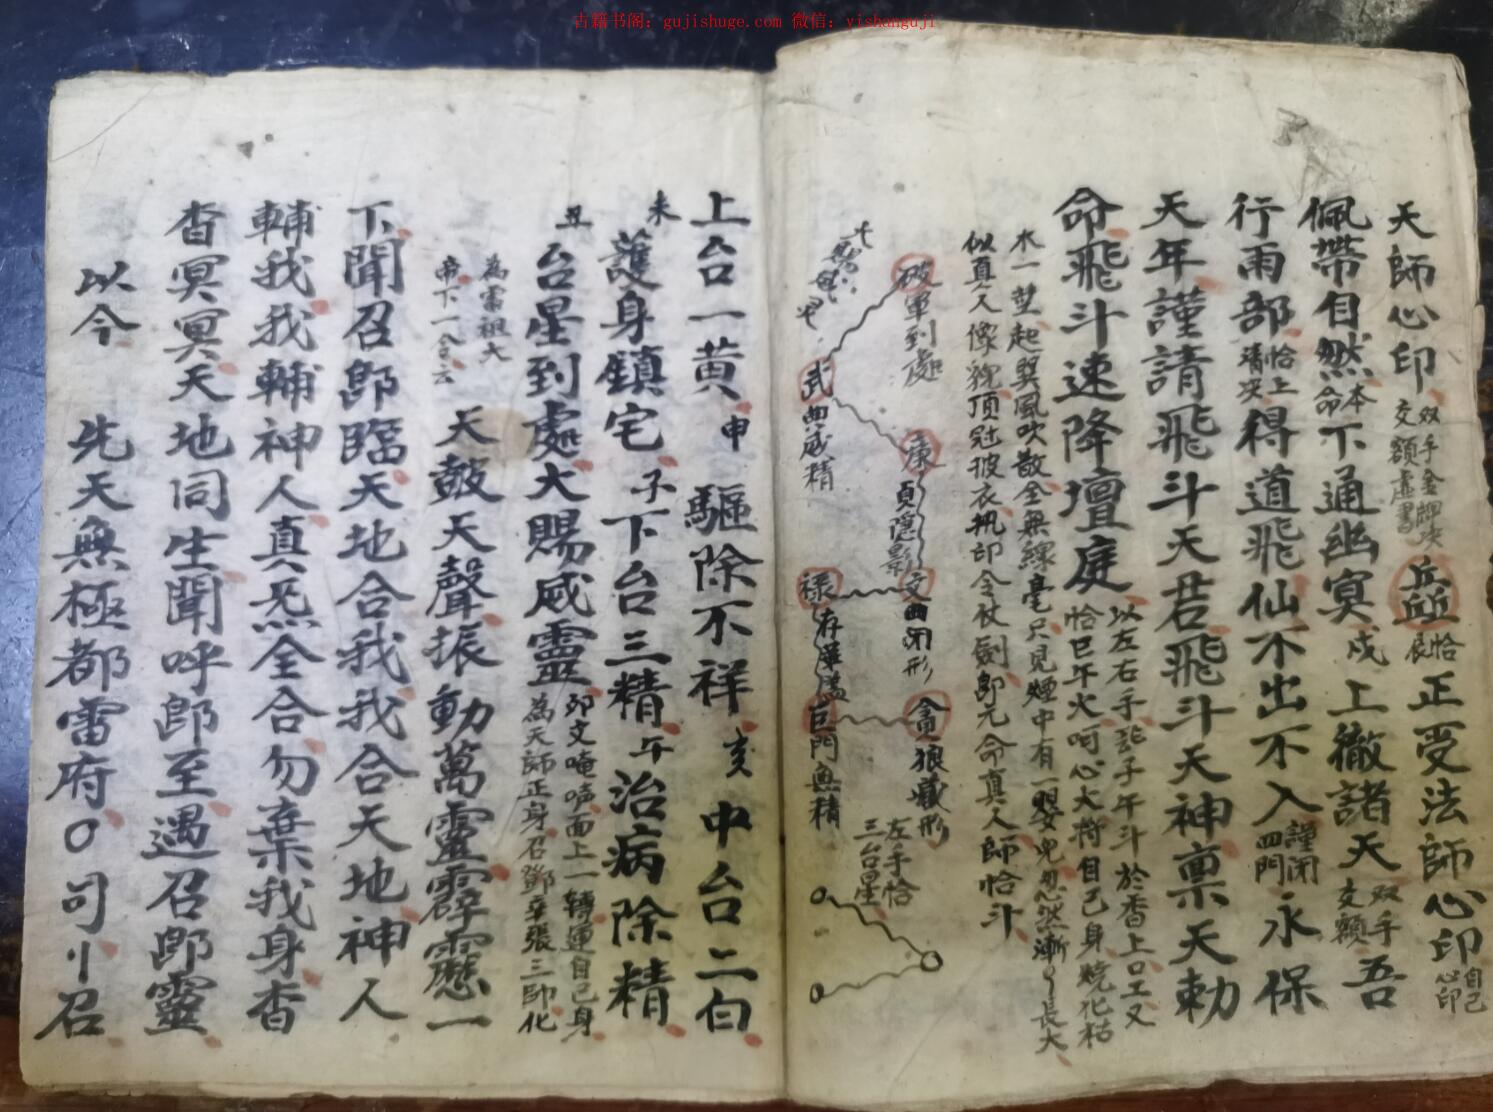 古籍书阁：gujishuge.com 微信：yishanguji
天師心印双手金
交額虚書
恰
正受法師心印自己心印
佩帶自然本命不通幽冥戍上徹諸天双手交額吾
行雨部恰上清突得道飛仙不出不入謹闭四門永保
天年謹請飛斗天君飛斗天神禀天勅
命飛斗速降壇庭以左右手子午斗於香上口工又
恰巳午火呵心大将自己身燒化枯
木一堃起巽風吹散全無線毫只見煙中有一嬰児忽然漸〻長大
似真人像貌頂冠披衣执印令仗劍即元命真人師恰斗
破軍到處
武曲威精
廉貞隐影
文曲闭形
禄存華盖
貪狼藏形
巨門無精
左手恰
三台星
上台一黄申驅除不祥亥中台二白
未護身鎮宅子下台三精午治病除精
丑台星到處大賜威靈卯文唵吽面上一轉運自己身
為天師正身召鄧辛張三帥化
為雷祖大
帝下一令云
天鼓天聲振動萬靈霹靂一
下聞召即臨天地合我我合天地神人
輔我我輔神人真炁全合勿棄我身杳
杳冥冥天地同生聞呼即至遇召即靈
以今先天無極都雷府〇司刂召